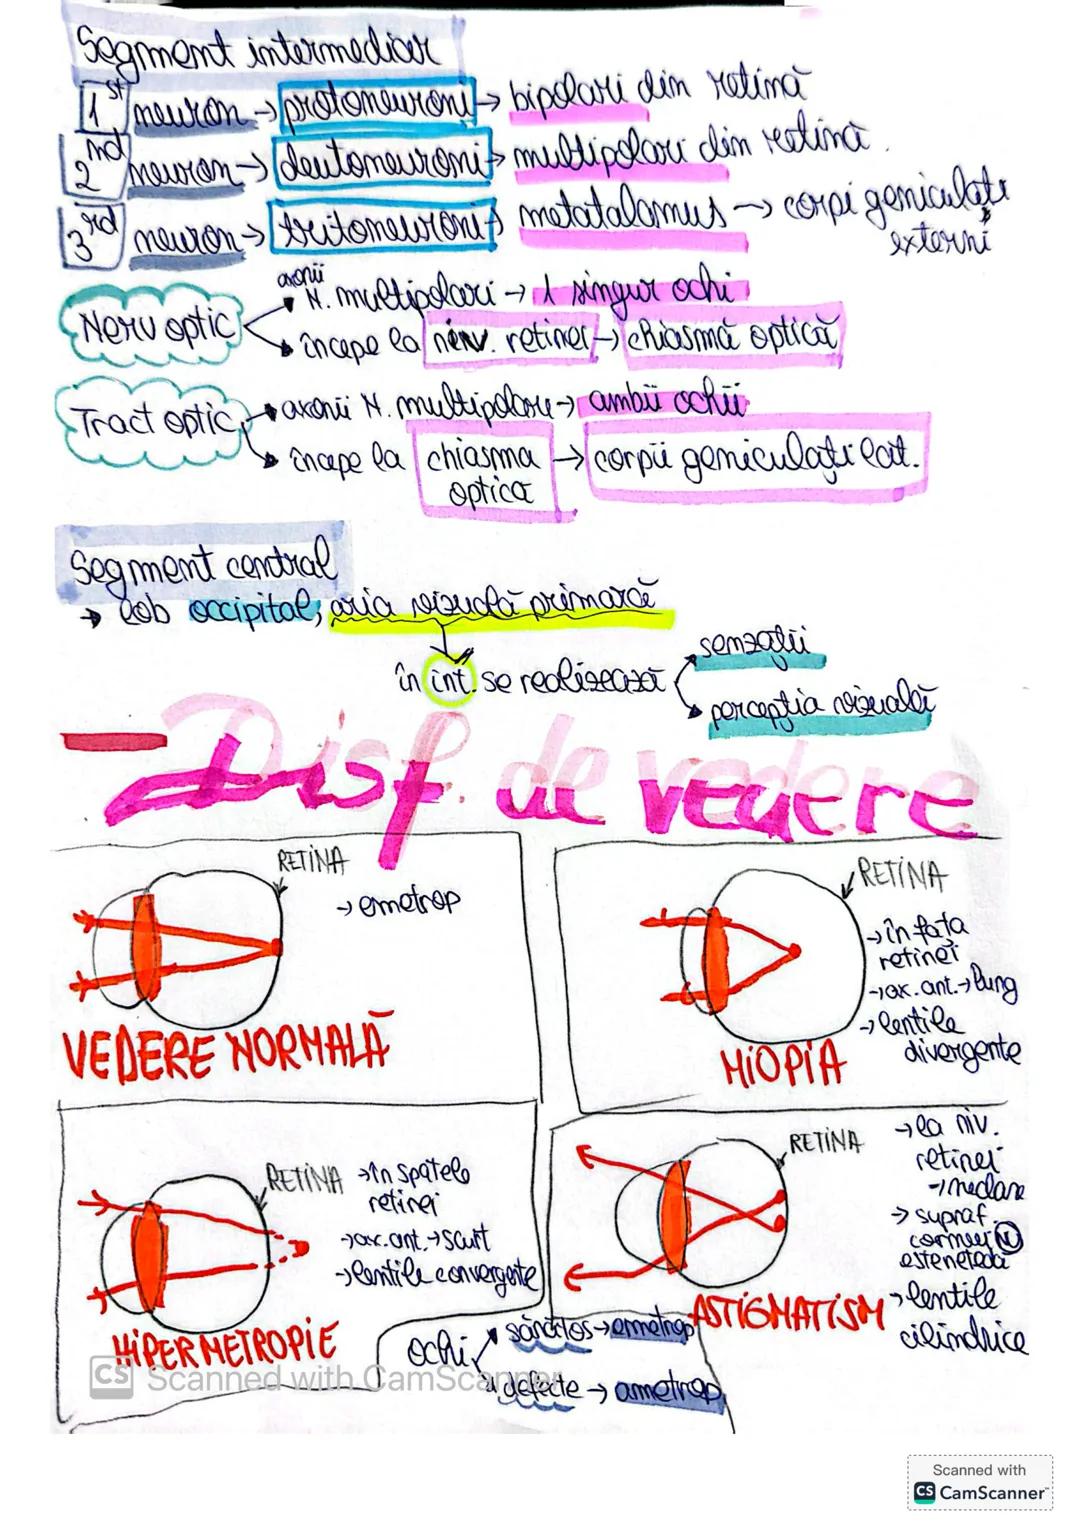 Segment intermediar
1st neuron → protoneuroni → bipolari din retină
2nd neuron → deutoneuroni → multipolari din retină.
3rd neuron → tritoneuroni → metatalamus → corpi geniculați
externi
Nerv optic
axonii
N. multipolari → 1 singur ochi
începe la niv. retinei → chiasmă optică
Tract optic
axonii N. multipolari → ambii ochii
începe la chiasma → corpii geniculați lat.
optica
Segment central
→ lob occipital, aria vizuală primară
în int. se realizează
senzații
percepția vizuală
Disf. de vedere
RETINA
→ emetrop
VEDERE NORMALĂ
RETINA
→ în fața
retinei
→ ax. ant. → lung
→ lentile
divergente
MIOPIA
RETINA
→ în spatele
retinei
→ ax. ant. → scurt
→ lentile convergente
HIPERMETROPIE
RETINA
→ la niv.
retinei
→ supraf.
corneei N
→ lentile
cilindrice
ASTIGMATISM
ochi
sănătos → emetrop
defecte → ametrop
CS Scanned with CamScanner
Scanned with
CS CamScanner